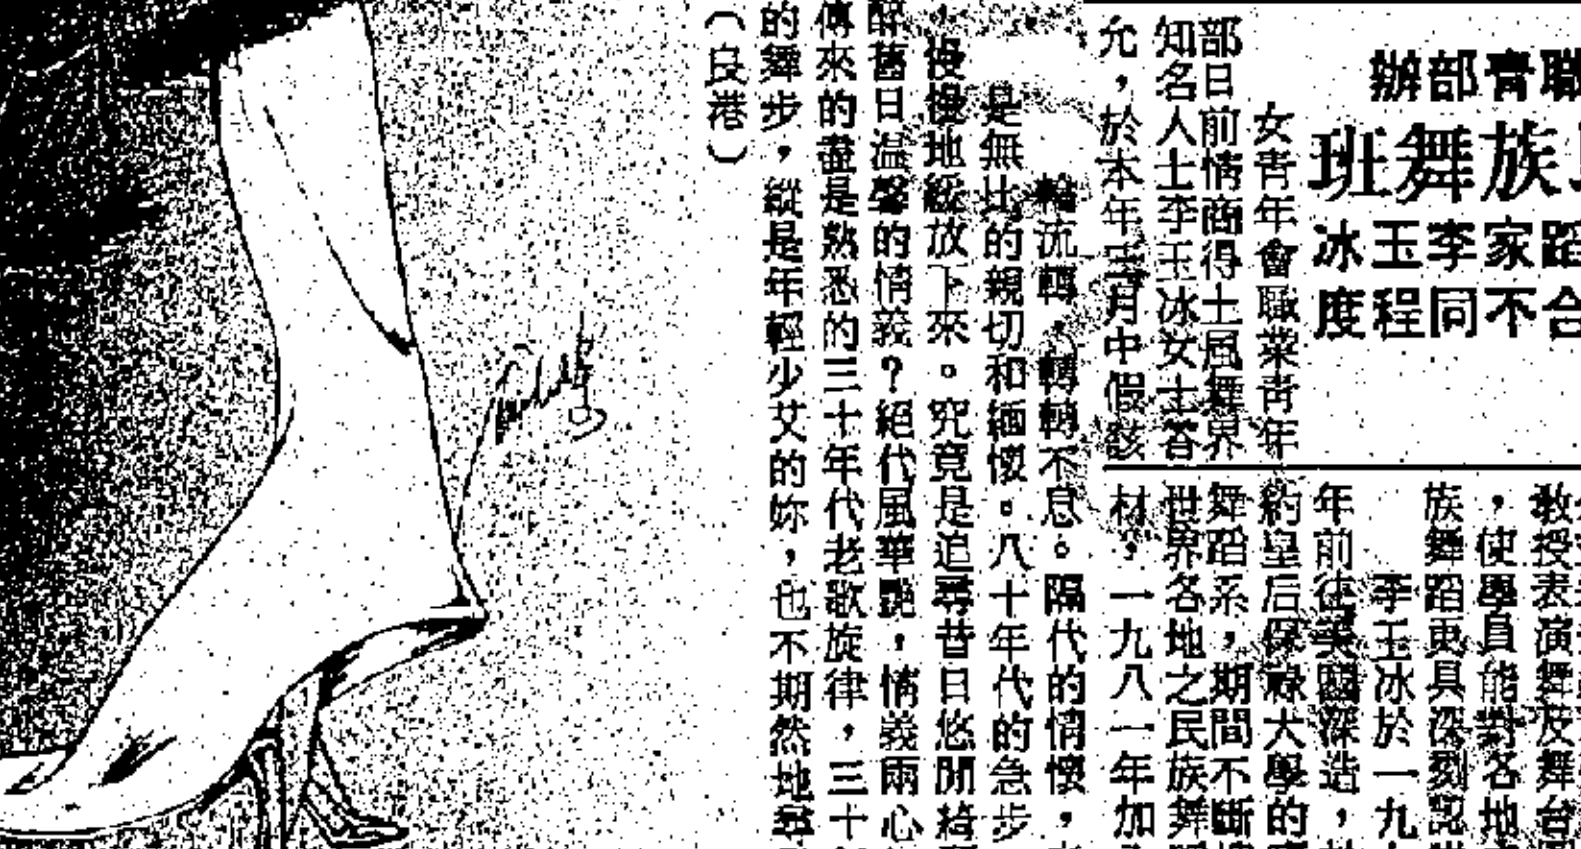 職青部辦
族舞班
蹈家李玉冰
合不同程度
女青年會職業青年
部日前情商得土風舞界
知名人士李玉冰女士答
允，於本年五月中假該
教授表演舞及舞台
，使學員能對各地
族舞蹈更具深刻認
李玉冰於一九
年前往美國深造，
約皇后保祿大學的
舞蹈系，期間不斷
世界各地之民族舞
材，一九八一年加
輪流轉，轉轉不息。隔代的情懷，
是無比的親切和緬懷。八十年代的急步
慢慢地緩放下來。究竟是追尋昔日悠閒綺
醉舊日温馨的情義？絕代風華艷，情義兩心
傳來的盡是熟悉的三十年代老歌旋律，三十
的舞步，縱是年輕少女的妳，也不期然地尋
（良港）